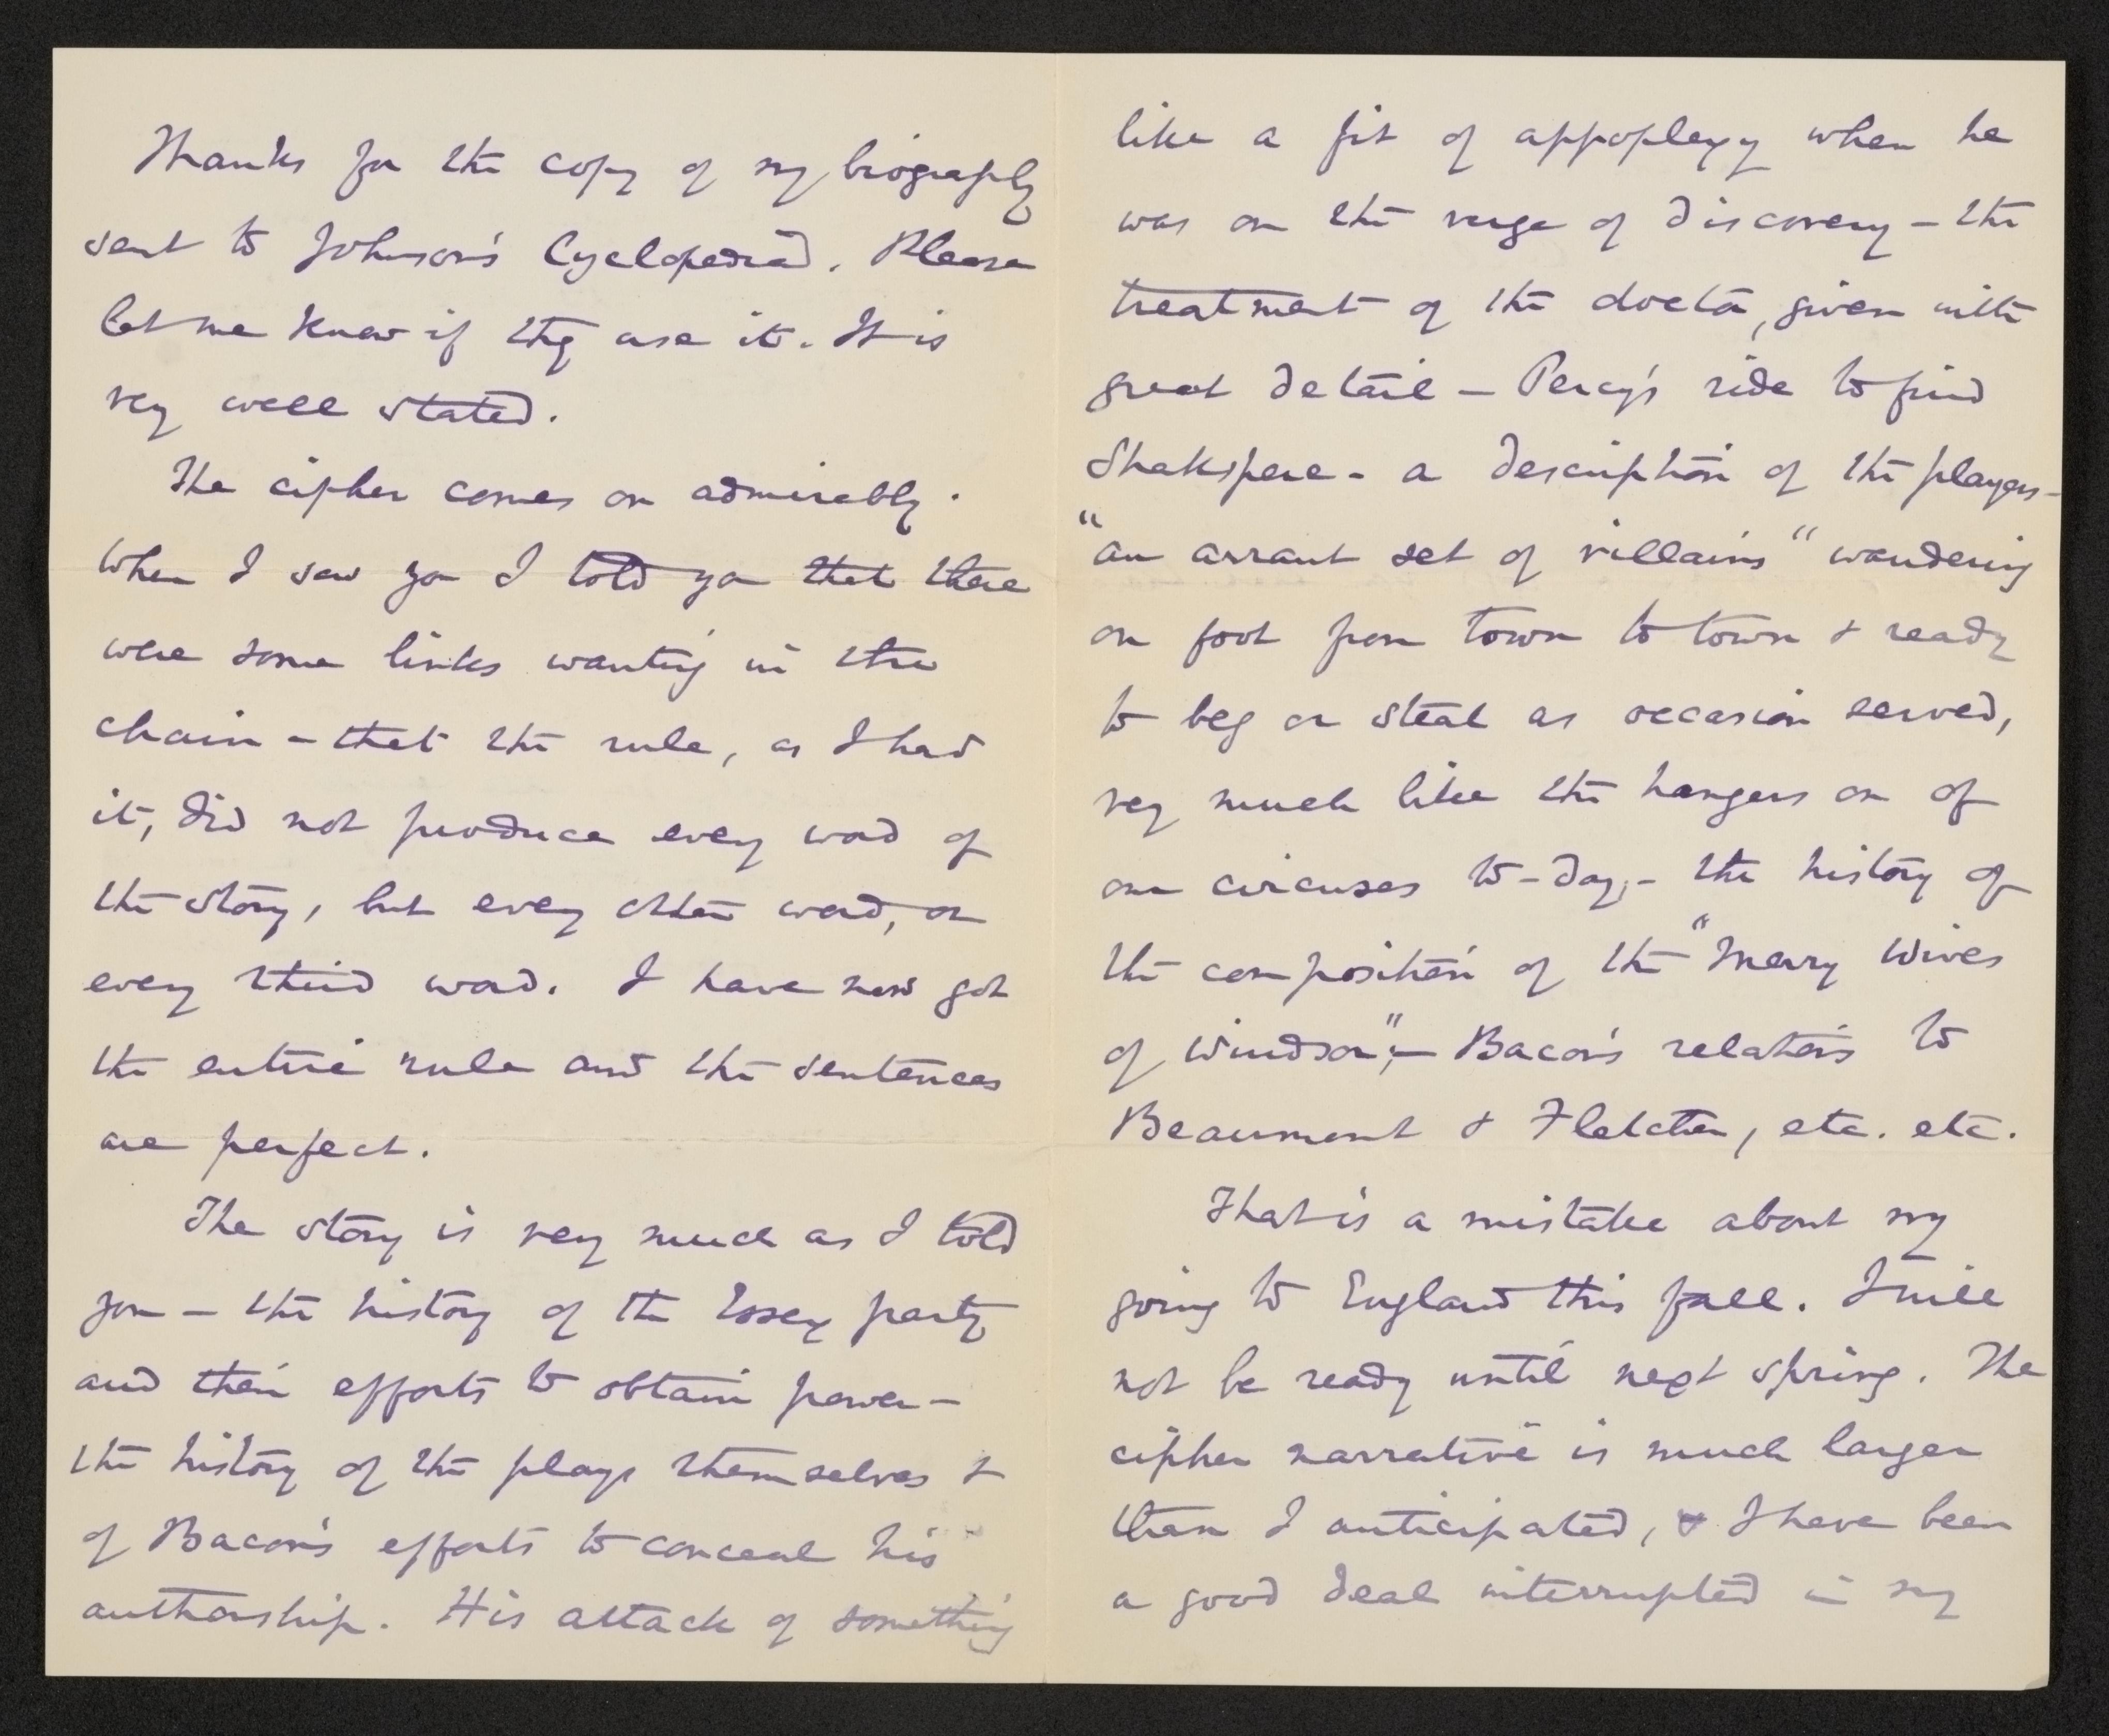 Thanks for the copy of my biography
sent to Johnson's Cyclopedia. Please
let me know if they use it. It is
very well stated.
The cipher comes on admirably.
When I saw you I told you that there
were some links wanting in the
chain – that the rule, as I had
it, did not produce every word of
the story, but every other word, or
every third word. I have now got
the entire rule and the sentences
are perfect.
The story is very much as I told
you – the history of the Essex party
and their efforts to obtain power –
the history of the plays themselves &
of Bacon's efforts to conceal his
authorship. His attack of something
like a fit of appoplexy when he
was on the verge of discovery – the
treatment of the doctor, given with
great detail – Percy's ride to find
Shakspere – a description of the players –
"an arrant set of villains" wandering
on foot from town to town & ready
to beg or steal as occasion served,
very much like the hangers on of
our circuses to-day, – the history of
the composition of the "Merry Wives
of Windsor", – Bacon's relations to
Beaumont & Fletcher, etc. etc.
That is a mistake about my
going to England this fall. I will
not be ready until next spring. The
cipher narrative is much larger
than I anticipated, & I have been
a good deal interrupted in my